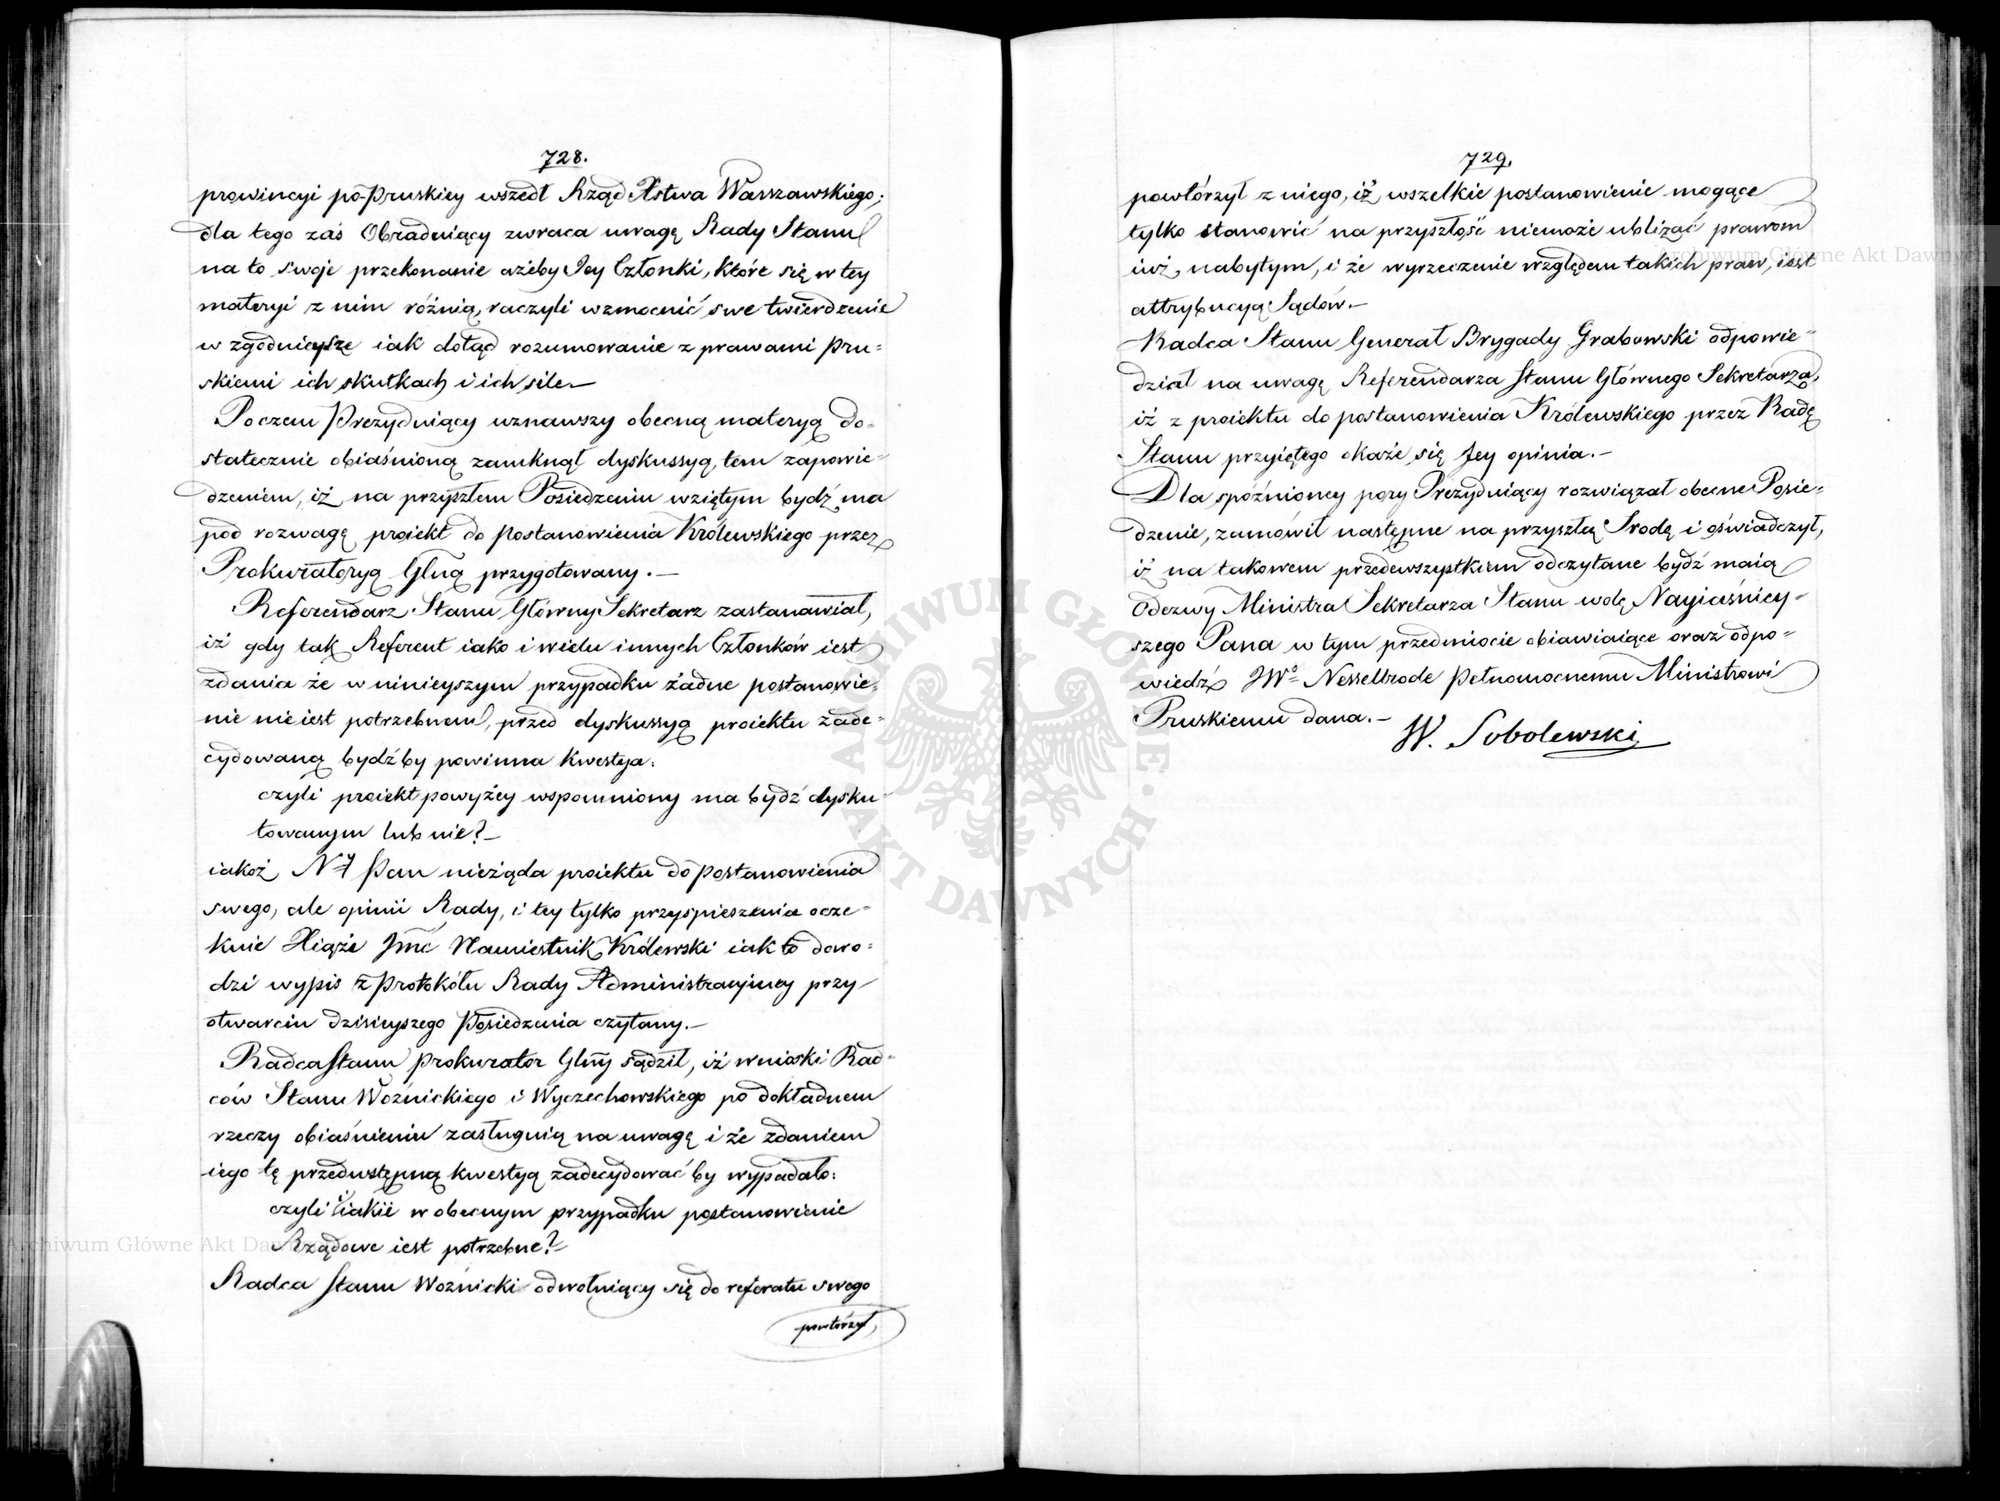 728.
prowincyi po-Pruskiey wszedł Rząd Xstwa Warszawskiego;
dla tego zaś Obraduiący zwraca uwagę Rady Stanu
na to swoje przekonanie ażeby Jey Członki, które się w tey
materyi z nim różnią, raczyli wzmocnić swe twierdzenie
w zgodnieysze iak dotąd rozumowanie z prawami Pru-
skiemi ich skutkach i ich sile.—
Poczem Prezyduiący uznawszy obecną materyą do-
statecznie obiaśnioną zamknął dyskussyą, tem zapowie-
dzeniem, iż na przyszłem Posiedzeniu wziętym bydź ma
pod rozwagę proiekt do postanowienia Królewskiego przez
Prokuratoryą Glną przygotowany.—
Referendarz Stanu Główny Sekretarz zastanawiał,
iż gdy tak Referent iako i wielu innych Członków iest
zdania że w ninieyszym przypadku żadne postanowie-
nie nie iest potrzebnem, przed dyskussyą proiektu zade-
cydowaną bydź by powinna kwestya:
czyli proiekt powyżey wspomniony ma bydź dysku-
towanym lub nie?—
iakoż N-y Pan nieżąda proiektu do postanowienia
swego, ale opinii Rady, i tey tylko przyspieszenia ocze-
kuie Xiąże Jmć Namiestnik Królewski iak to dowo-
dzi wypis z Protokółu Rady Administracyiney przy
otwarciu dzisieyszego Posiedzenia czytany.—
Radca Stanu Prokurator Glny sądził, iż wnioski Rad-
ców Stanu Woźnickiego i Wyczechowskiego po dokładnem
rzeczy obiaśnieniu zasługuią na uwagę i że zdaniem
iego tę przedwstępną kwestyą zadecydować by wypadało:
czyli iakie w obecnym przypadku postanowienie
Rządowe iest potrzebne?—
Radca Stanu Woźnicki odwołuiący się do referatu swego
powtórzył,
729.
powtórzył z niego, iż wszelkie postanowienie mogące
tylko stanowić na przyszłość niemoże ubliżać prawom
iuż nabytym, i że wyrzeczenie względem takich praw, iest
attrybucyą Sądów.—
Radca Stanu Generał Brygady Grabowski odpowie-
dział na uwagę Referendarza Stanu Głównego Sekretarza,
iż z proiektu do postanowienia Królewskiego przez Radę
Stanu przyiętego okaże się Jey opinia.—
Dla spóźnioney pory Prezyduiący rozwiązał obecne Posie-
dzenie, zamówił następne na przyszłą Srodę i oświadczył,
iż na takowem przedewszystkiem odczytane bydź maią
Odezwy Ministra Sekretarza Stanu wolę Nayiaśniey-
szego Pana w tym przedmiocie obiawiaiące oraz odpo-
wiedź JWo Nesselrode Pełnomocnemu Ministrowi
Pruskiemu dana.—
W. Sobolewski
ARCHIWUM GŁÓWNE AKT DAWNYCH
Archiwum Główne Akt Dawnych
Archiwum Główne Akt Dawnych